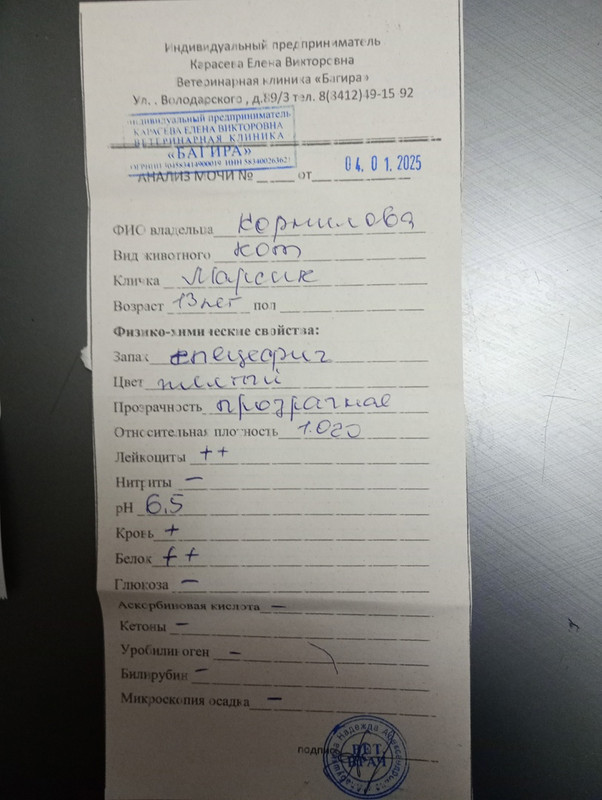 Индивидуальный предприниматель
Карасева Елена Викторовна
Ветеринарная клиника «Багира»
Ул. . Володарского , д.89/3 тел. 8(3412)49-15 92
Индивидуальный предприниматель
КАРАСЕВА ЕЛЕНА ВИКТОРОВНА
ВЕТЕРИНАРНАЯ КЛИНИКА
«БАГИРА»
АНАЛИЗ МОЧИ № от 04. 01. 2025
ФИО владельца Корнилова
Вид животного кот
Кличка Марсик
Возраст 13 лет пол
Физико-химические свойства:
Запах специфич
Цвет желтый
Прозрачность прозрачная
Относительная плотность 1.020
Лейкоциты ++
Нитриты –
pH 6,5
Кровь +
Белок ++
Глюкоза –
Аскорбиновая кислота –
Кетоны –
Уробилиноген –
Билирубин –
Микроскопия осадка –
подпись
ВЕТ.
ВРАЧ